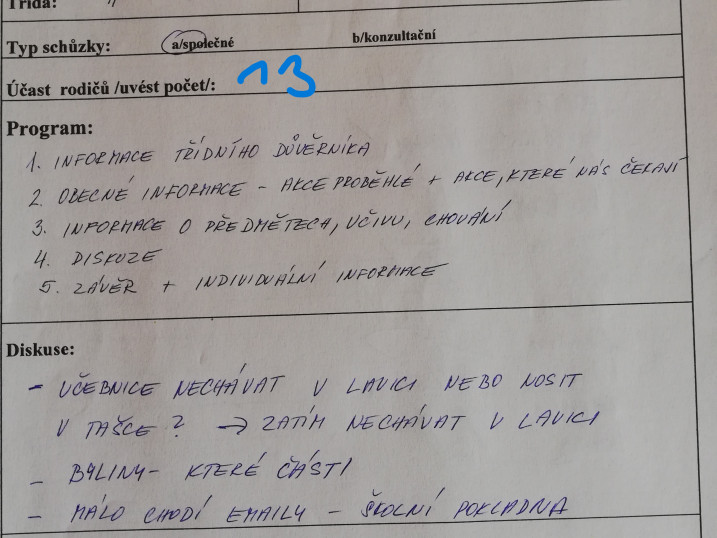 Třída:
Typ schůzky: a/společné b/konzultační
Účast rodičů /uvést počet/: 13
Program:
1. INFORMACE TŘÍDNÍHO DŮVĚRNÍKA
2. OBECNÉ INFORMACE - AKCE PROBĚHLÉ + AKCE, KTERÉ NÁS ČEKAJÍ
3. INFORMACE O PŘEDMĚTECH, UČIVU, CHOVÁNÍ
4. DISKUZE
5. ZÁVĚR + INDIVIDUÁLNÍ INFORMACE
Diskuse:
- UČEBNICE NECHÁVAT V LAVICI NEBO NOSIT
V TAŠCE? → ZATÍM NECHÁVAT V LAVICI
- BYLINY - KTERÉ ČÁSTI
- MÁLO CHODÍ EMAILY - ŠKOLNÍ POKLADNA